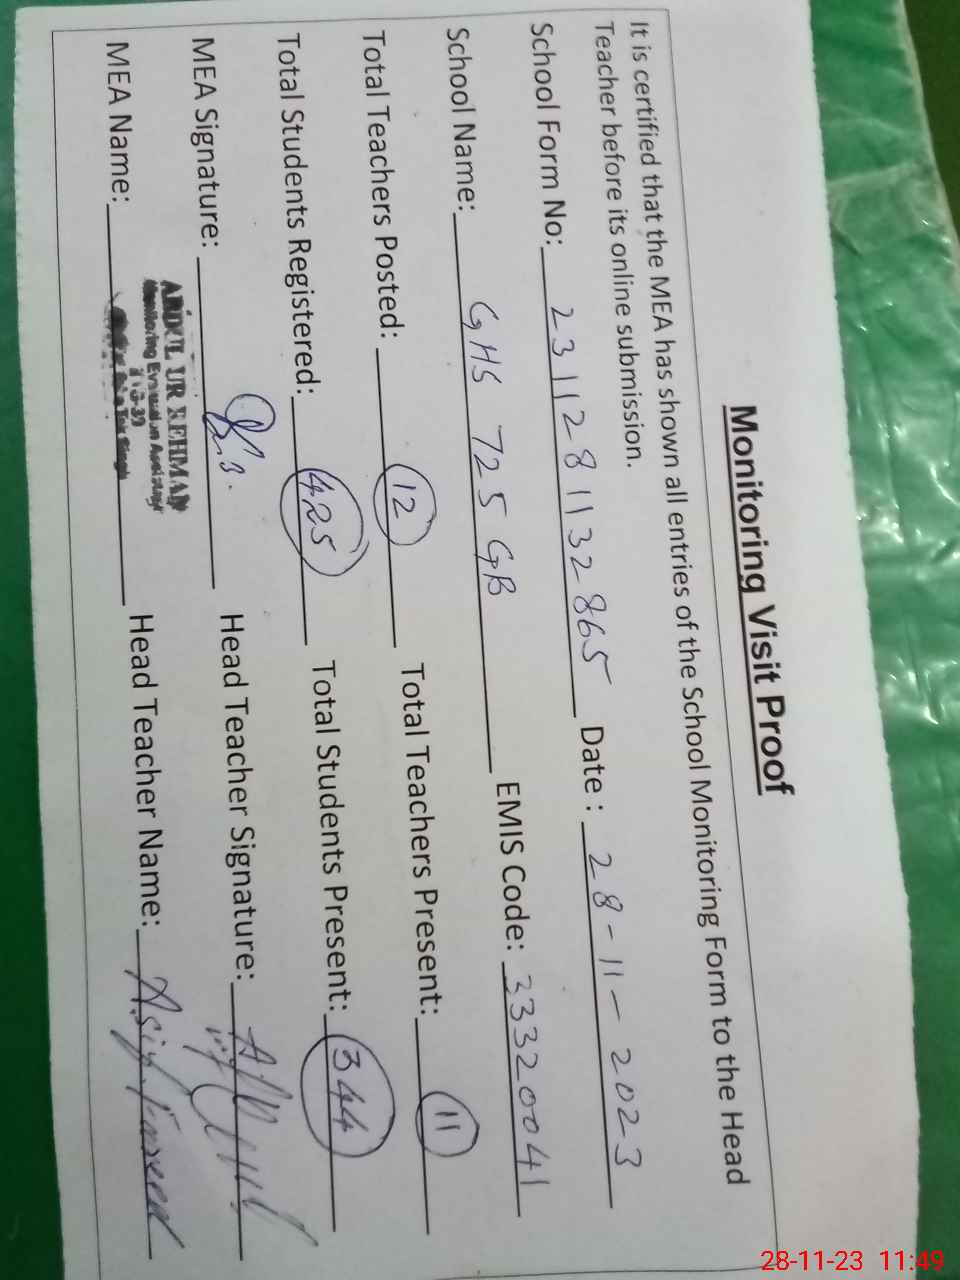 Monitoring Visit Proof
It is certified that the MEA has shown all entries of the School Monitoring Form to the Head
Teacher before its online submission.
School Form No: 231128 1132 865 Date : 28-11-2023
School Name: GHS 725 GB EMIS Code: 33320041
Total Teachers Posted: 12 Total Teachers Present: 11
Total Students Registered: 425 Total Students Present: 344
MEA Signature: Head Teacher Signature:
ABDUL UR REHMAN
Monitoring Evaluation Assistant
MEA Name: Head Teacher Name: Asif
28-11-23 11:49